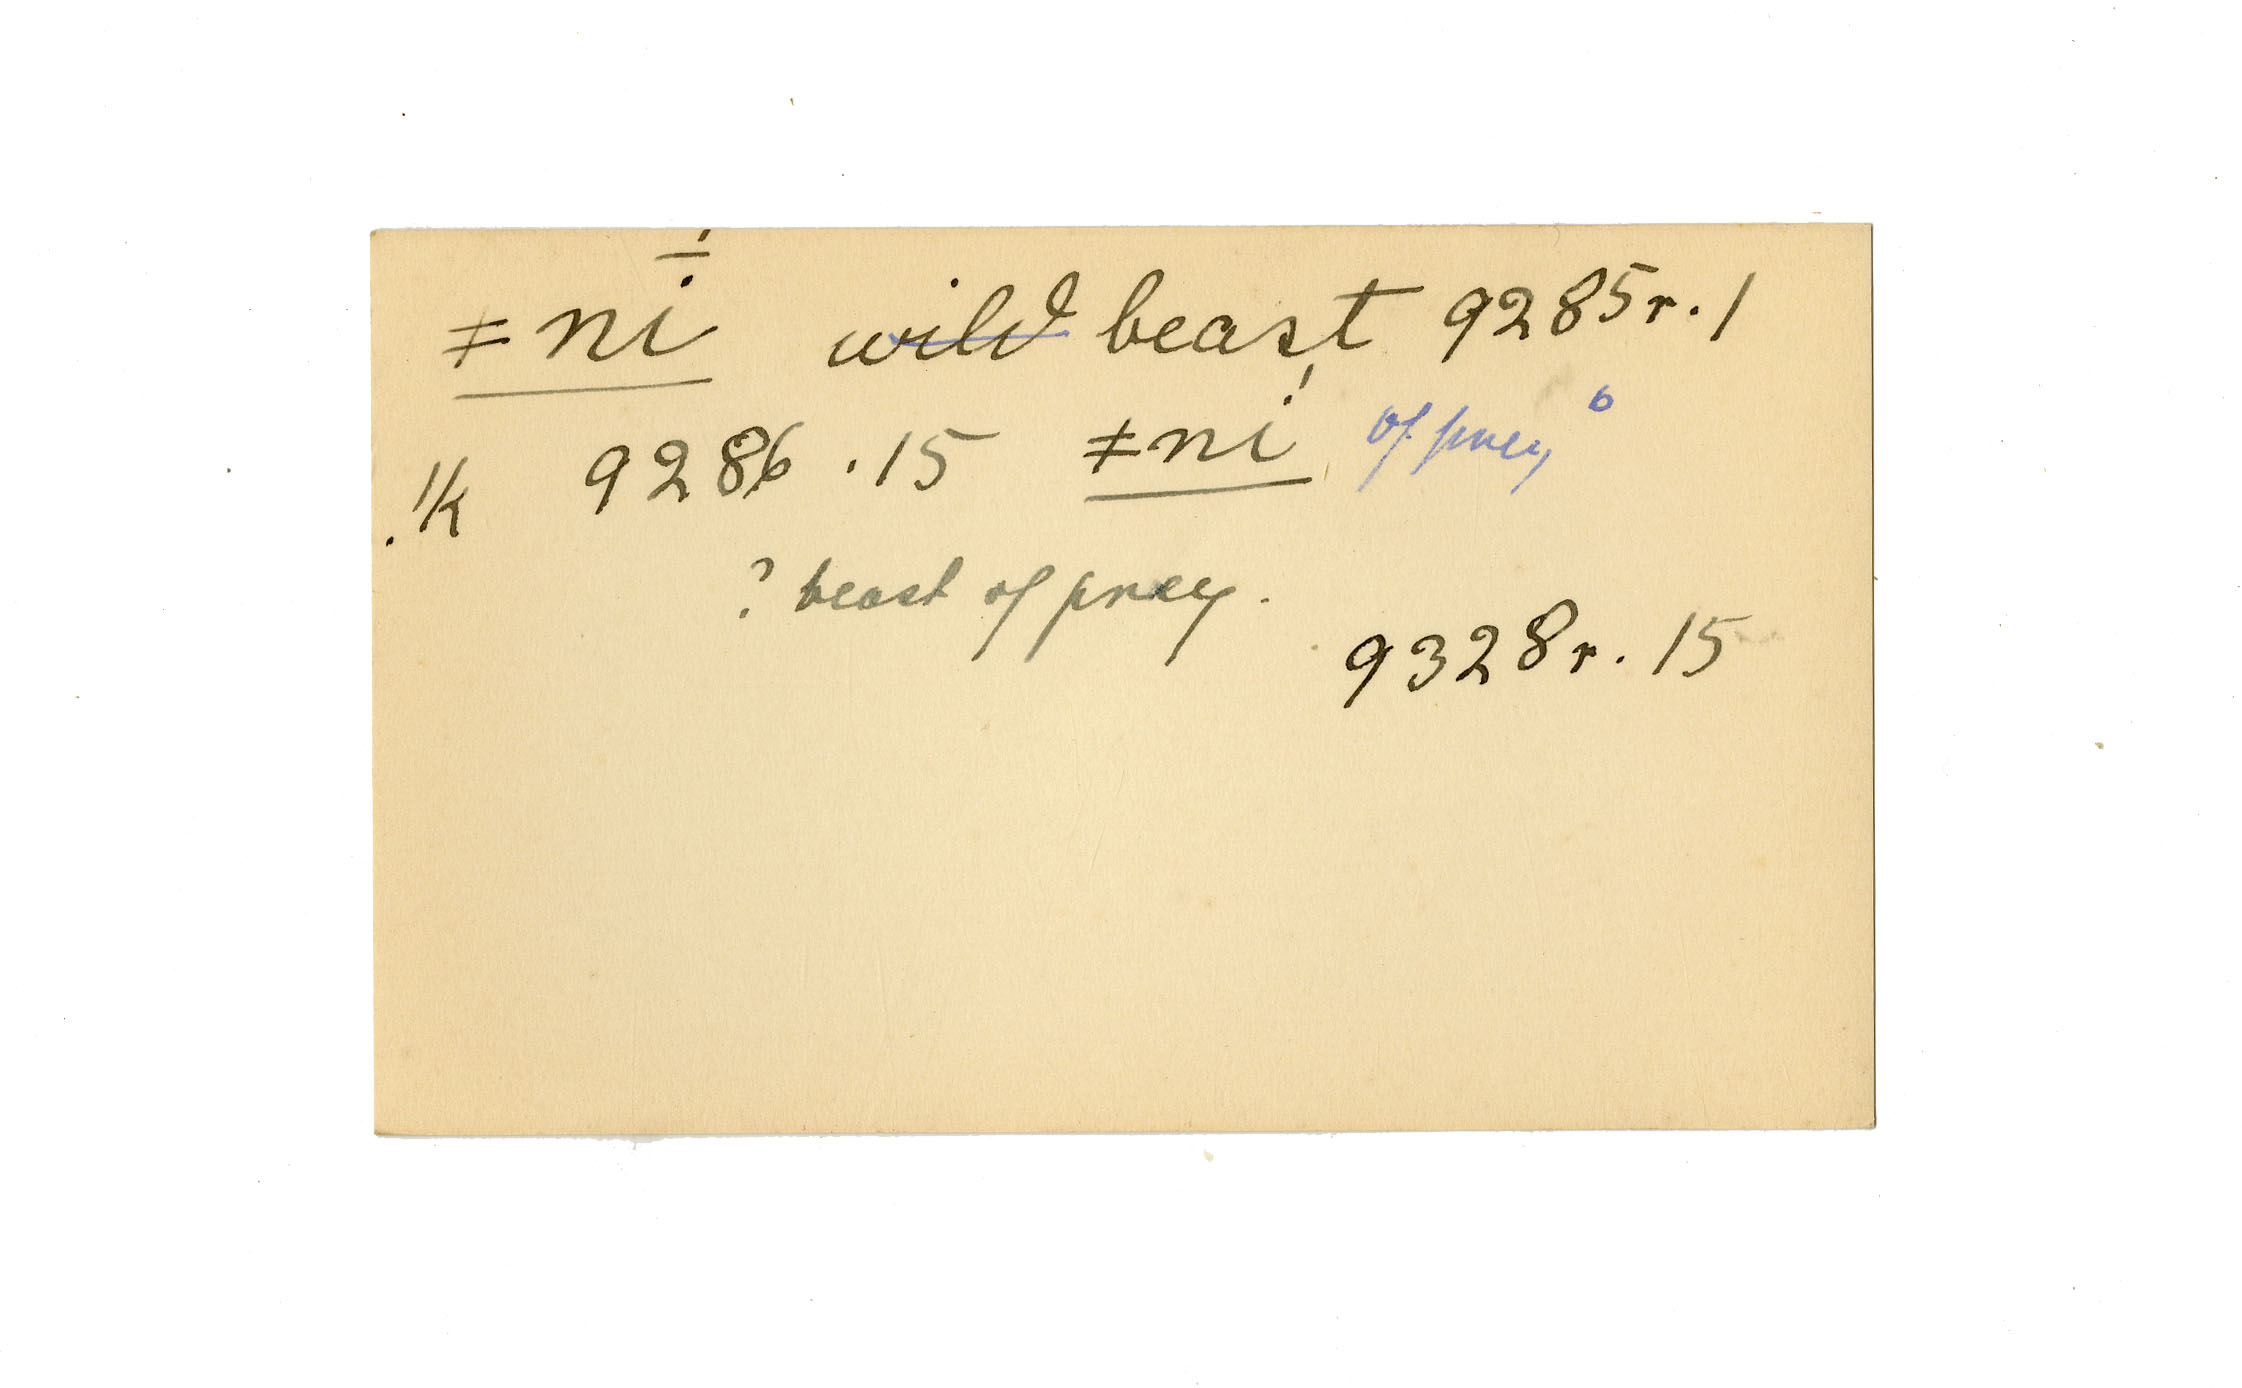 ǂní̱ ~~wild~~ beast 9285r.1
!k 9286.15 ǂní of prey 6
? beast of prey.
9328r.15